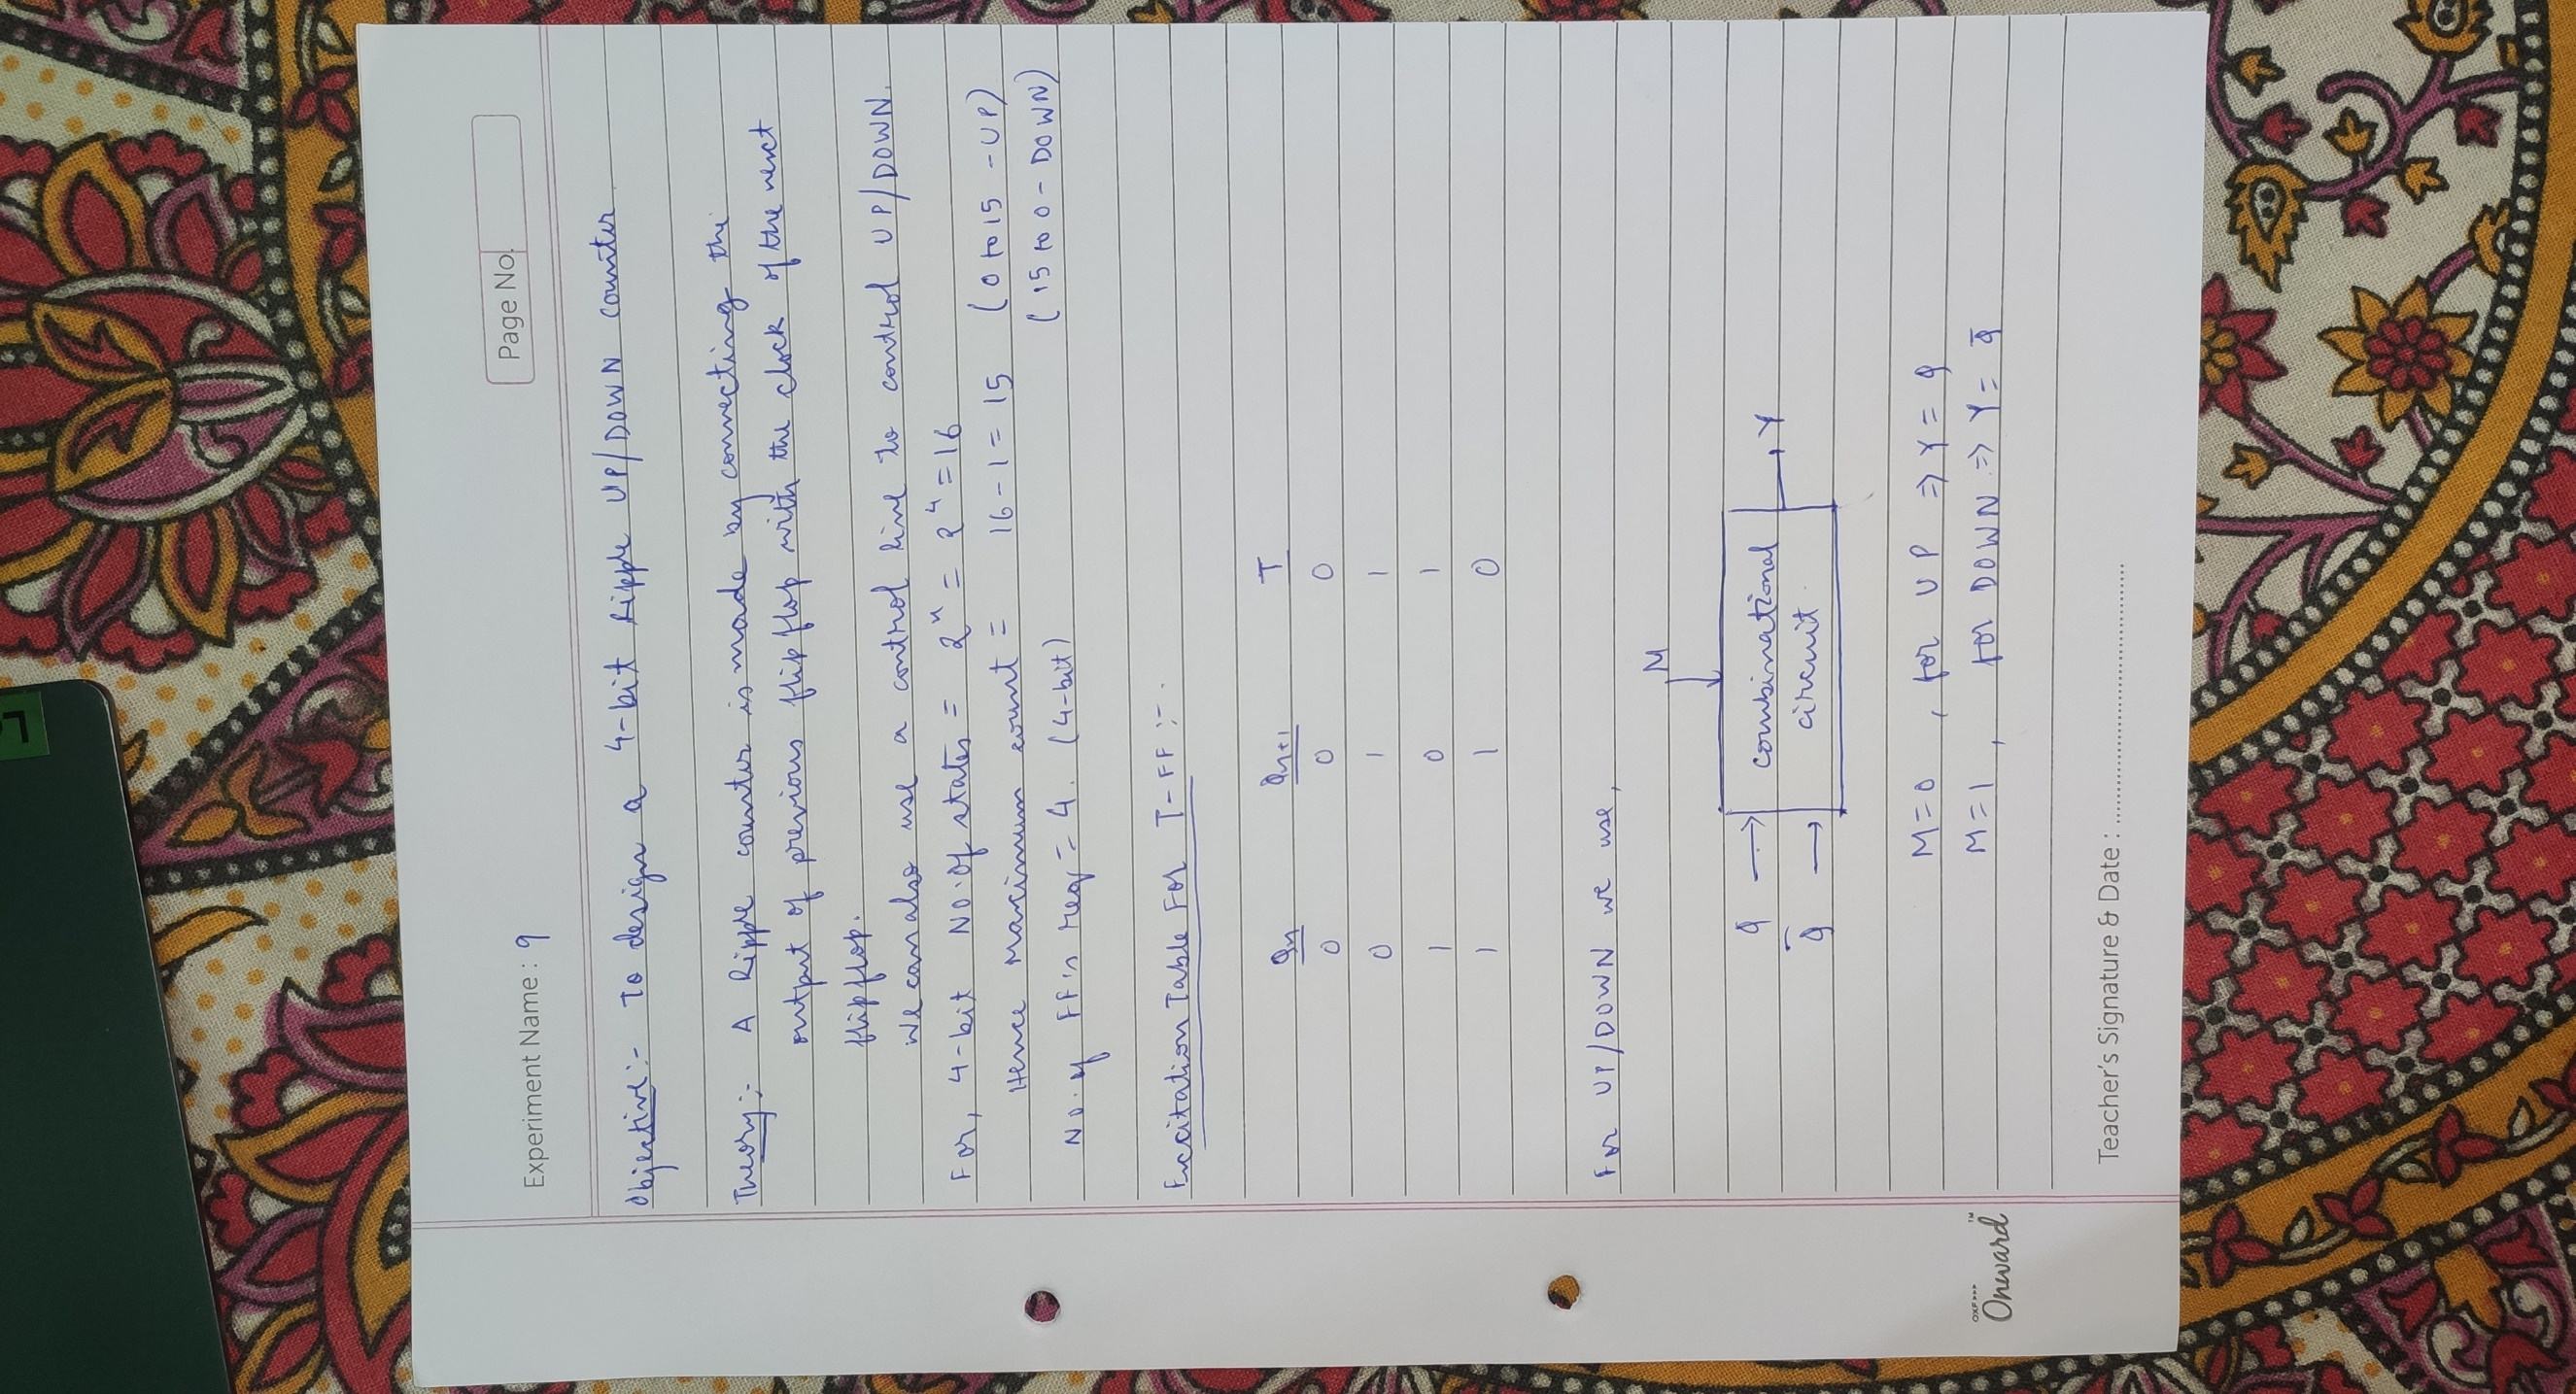 Page No.
Experiment Name : 9
Objective:- To design a 4-bit Ripple UP/DOWN counter
Theory:- A Ripple counter is made by connecting the
output of previous flip flop with the clock of the next
flip flop.
We can also use a control line to control UP/DOWN.
For, 4-bit No. of states = 2ⁿ = 2⁴ = 16
Hence Maximum count = 16 - 1 = 15 (0 to 15 - UP)
(15 to 0 - DOWN)
No. of FF's req = 4. (4-bit)
Excitation Table For T-FF :-
Qn Qn+1 T
0 0 0
0 1 1
1 0 1
1 1 0
For UP/DOWN we use,
M
Q → combinational Y
Q̄ → circuit.
M = 0, for UP ⇒ Y = Q
M = 1, for DOWN ⇒ Y = Q̄
Teacher's Signature & Date :
Onward™